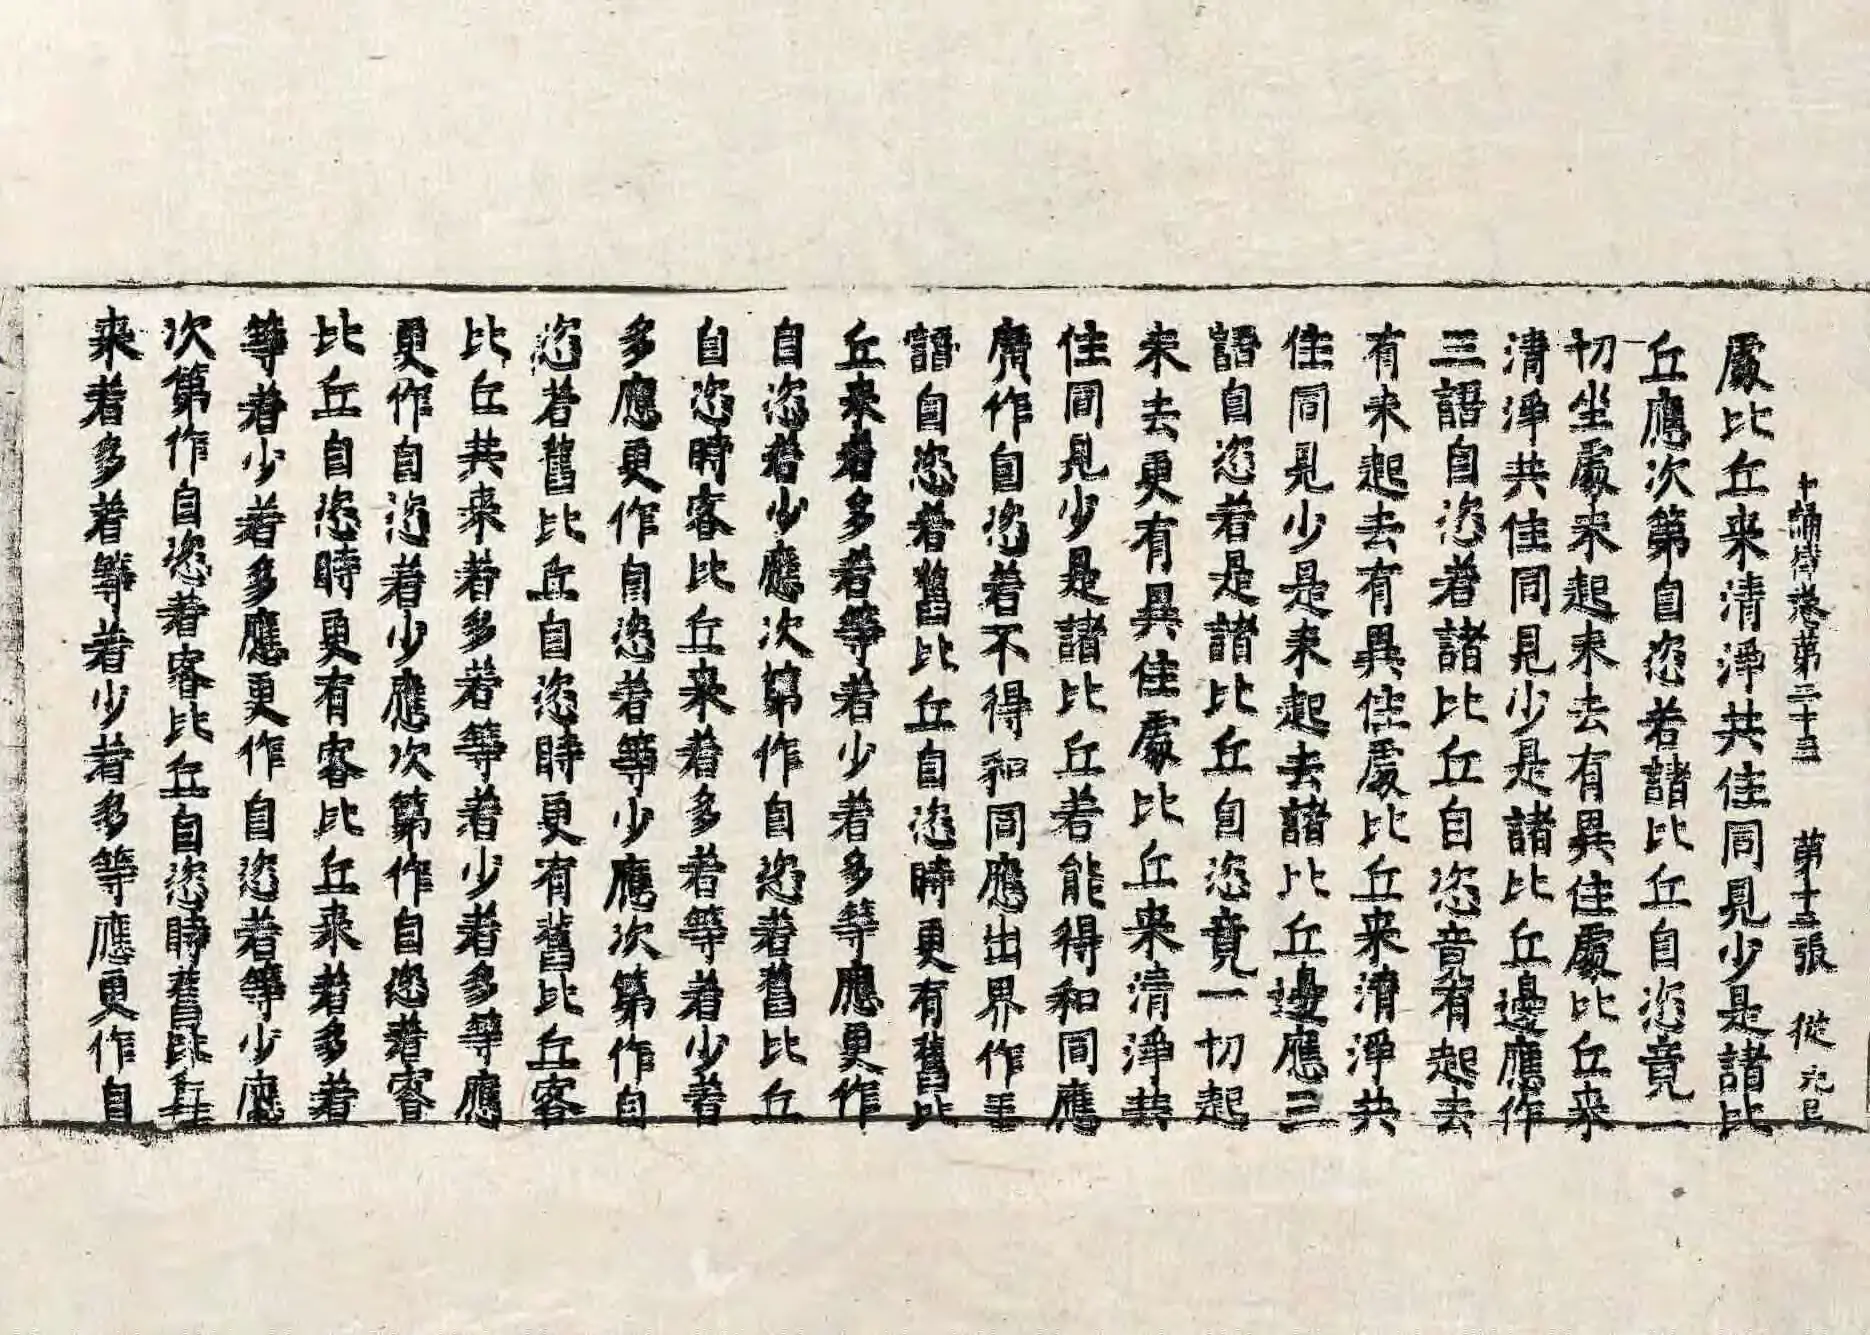 十誦律卷第二十三 第十三張 從
處比丘来清淨共住同見少是諸比
丘應次第自恣若諸比丘自恣竟一
切坐處未起未去有異住處比丘来
清淨共住同見少是諸比丘邊應作
三語自恣若諸比丘自恣竟有起去
有未起去有異住處比丘来清淨共
住同見少是未起去諸比丘邊應三
語自恣若是諸比丘自恣竟一切起
未去更有異住處比丘来清淨共
住同見少是諸比丘若能得和同應
廣作自恣若不得和同應出界作三
語自恣若舊比丘自恣時更有舊比
丘来若多若等若少若多等應更作
自恣若少應次第作自恣若舊比丘
自恣時客比丘来若多若等若少若
多應更作自恣若等少應次第作自
恣若舊比丘自恣時更有舊比丘客
比丘共来若多若等若少若多等應
更作自恣若少應次第作自恣若客
比丘自恣時更有客比丘来若多若
等若少若多應更作自恣若等少應
次第作自恣若客比丘自恣時舊比丘
来若多若等若少若多等應更作自